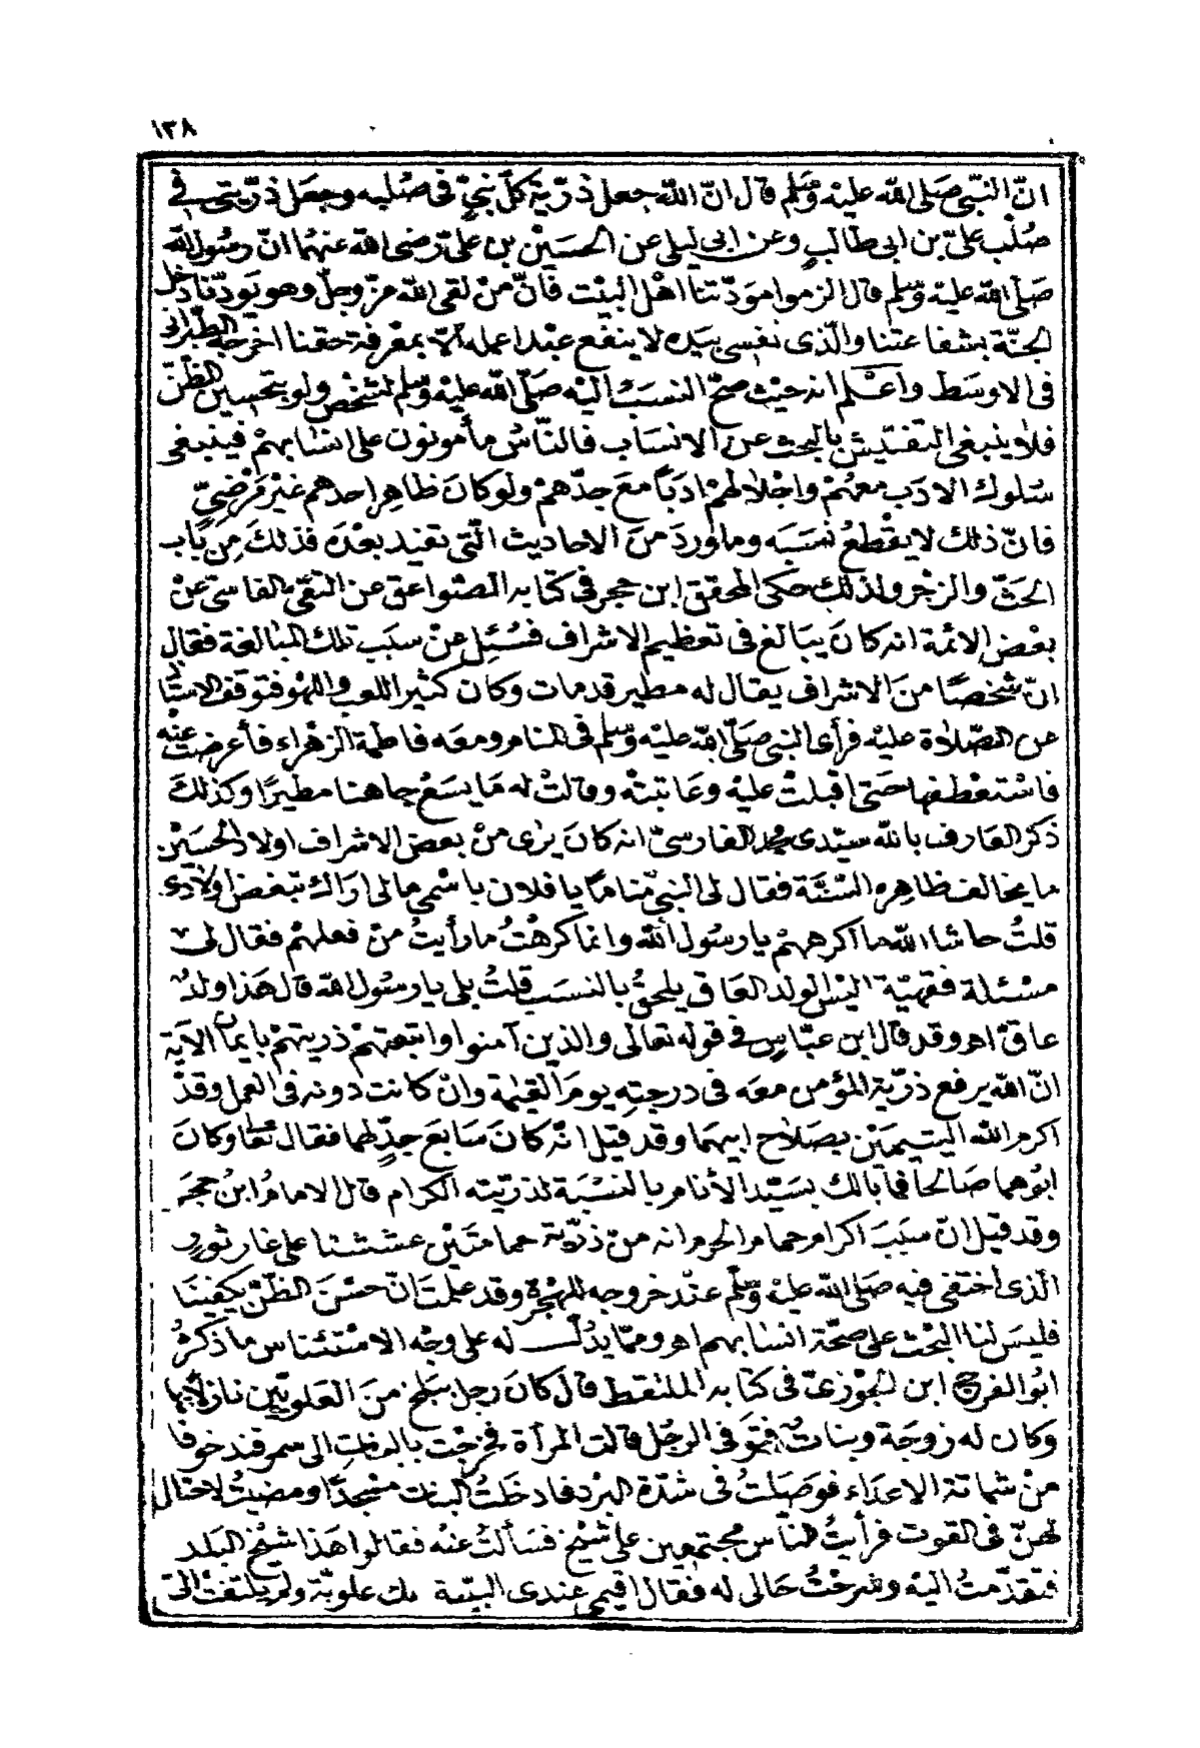 ١٣٨
انّ النّبيّ صَلى الله عليْه وَسَلم قال انّ الله جعل ذرّية كلّ نبيّ فى صُلبه وجعَل ذرّيتى فى
صُلْب علىّ بن ابى طالبٍ وعن ابى ليلى عن الحسَيْن بن علىّ رضى الله عنهُما انّ رسُول الله
صَلّى الله عليْه وَسّلم قال الزموا موَدّتنا اهْل البيْت فانّ منْ لقى الله عزّ وجلّ وهو يَودّنا دَخل
الجنّة بشفاعتنا والّذى نفسى بيَده لا ينفع عبْدا عمله الاّ بمعْرفة حقنا اخرجه الطّبرانى
فى الاوسَط واعْلم انه حيْث صحّ النسَبُ اليْه صَلّى الله عليْه وَسّلم لشخْص ولو بتحسين الظّنّ
فلا ينبغى التفتيش بالبحث عن الانسَاب فالنّاسُ مأمونون على انسَابهمْ فينبغى
سُلوك الادَب معهُمْ واجْلالهمْ ادَباً مَع جدّهمْ ولو كانَ ظاهِر احدهم غيْر مَرْضِيٍّ
فانّ ذلك لا يقْطعُ نسَبَه وماورَدَ منَ الاحاديث الّتى تفيد بعْدَه فذلكَ مِن بَاب
الحَثّ والزجْر ولذلك حكى المحقق ابن حجر فى كتابه الصّواعق عن التقىّ الفاسى عَنْ
بعْض الائمة انه كانَ يبَالغ فى تعظيم الاشراف فسُئِل عنْ سبَب تلك المبَالغة فقال
انّ شخصًا منَ الاشراف يقال له مطير قدمات وكان كثير اللعب واللهو فتوقف الاستاذ
عن الصّلاة عليْه فرأى النبى صَلّى الله عليْه وَسّلم فى المنام ومعَه فاطمة الزهْراء فأعرضتْ عنْه
فاسْتعْطفها حَتى اقبلتْ عليْه وعَاتبتْه وقالتْ له مَا يسَعُ جاهنا مطيرًا وكذلكَ
ذكر العَارف بالله سيّدى محمد الفارسىّ انه كانَ يرٰى منْ بعض الاشراف اولاد الحسَيْن
ما يخالف ظاهِره السّنّة فقال لى النبىّ منَامًا يا فلان باسْمى مالى ارَاك تبغض اولادى
قلتُ حاشا الله ما اكرههمْ يا رسُول الله وانما كرهْتُ ما رأيتُ منْ فعلهمْ فقال لى
مسْئلة فقهيّة اليْس الولد العَاق يلحقُ بالنسَب قلتُ بلى يا رسُول الله قال هَذا ولدٌ
عاقّ اهـ وقد قال ابن عبّاسٍ فى قوله تعَالى والذين آمنوا واتبعتهمْ ذريتهمْ بايمان الآيَة
انّ الله يرفع ذرّية المؤمن معَه فى درجتِه يومَ القيٰمة وانْ كانت دونه فى العمل وقدْ
اكرم الله اليَتيمَيْن بصَلاح ابيهمَا وقد قيل انّه كانَ سَابعَ جدٍّ لهما فقال تعَالى وكانَ
ابُوهما صَالحًا فما بَالك بسَيّد الأنام بالنسْبَة لذرّيته الكرام قال الامامُ ابنُ حجَر
وقد قيل انّ سبَبَ اكرام حمام الحرم انه من ذرّية حمامتَيْن عششتا على غار ثورٍ
الّذى اختفى فيه صَلى الله عليْه وَسّلم عنْد خروجه للهجْرة وقد علمْتَ انّ حسْنَ الظّنّ يكفينَا
فليسَ لنا البحْث على صحّة انسَابهم اهـ وممّا يدُلّ له على وجْه الاسْتئناس ما ذكرهُ
ابُو الفرج ابن الجوْزىّ فى كتابه الملتقط قال كانَ رجل ببَلخ منَ العَلويّين نازلاً بها
وكان له زوجَة وبنات فتوَفى الرجُل قالت المرأة فخرجْت بالبنات الى سمرقند خوفا
منْ شماتة الاعدَاء فوصَلتُ فى شدّة البرْد فادخلتُ البنات مسْجدًا ومضيْتُ لاحتال
لهنّ فى القوت فرأيتُ النّاس مجتمعين على شيْخ فسَألتُ عنْه فقالوا هَذا شيْخ البَلد
فتقدّمتُ اليْه وشرحْتُ حَالى له فقال اقيمى عندى البيّنة انك علويّة ولم يلتفتْ الىّ